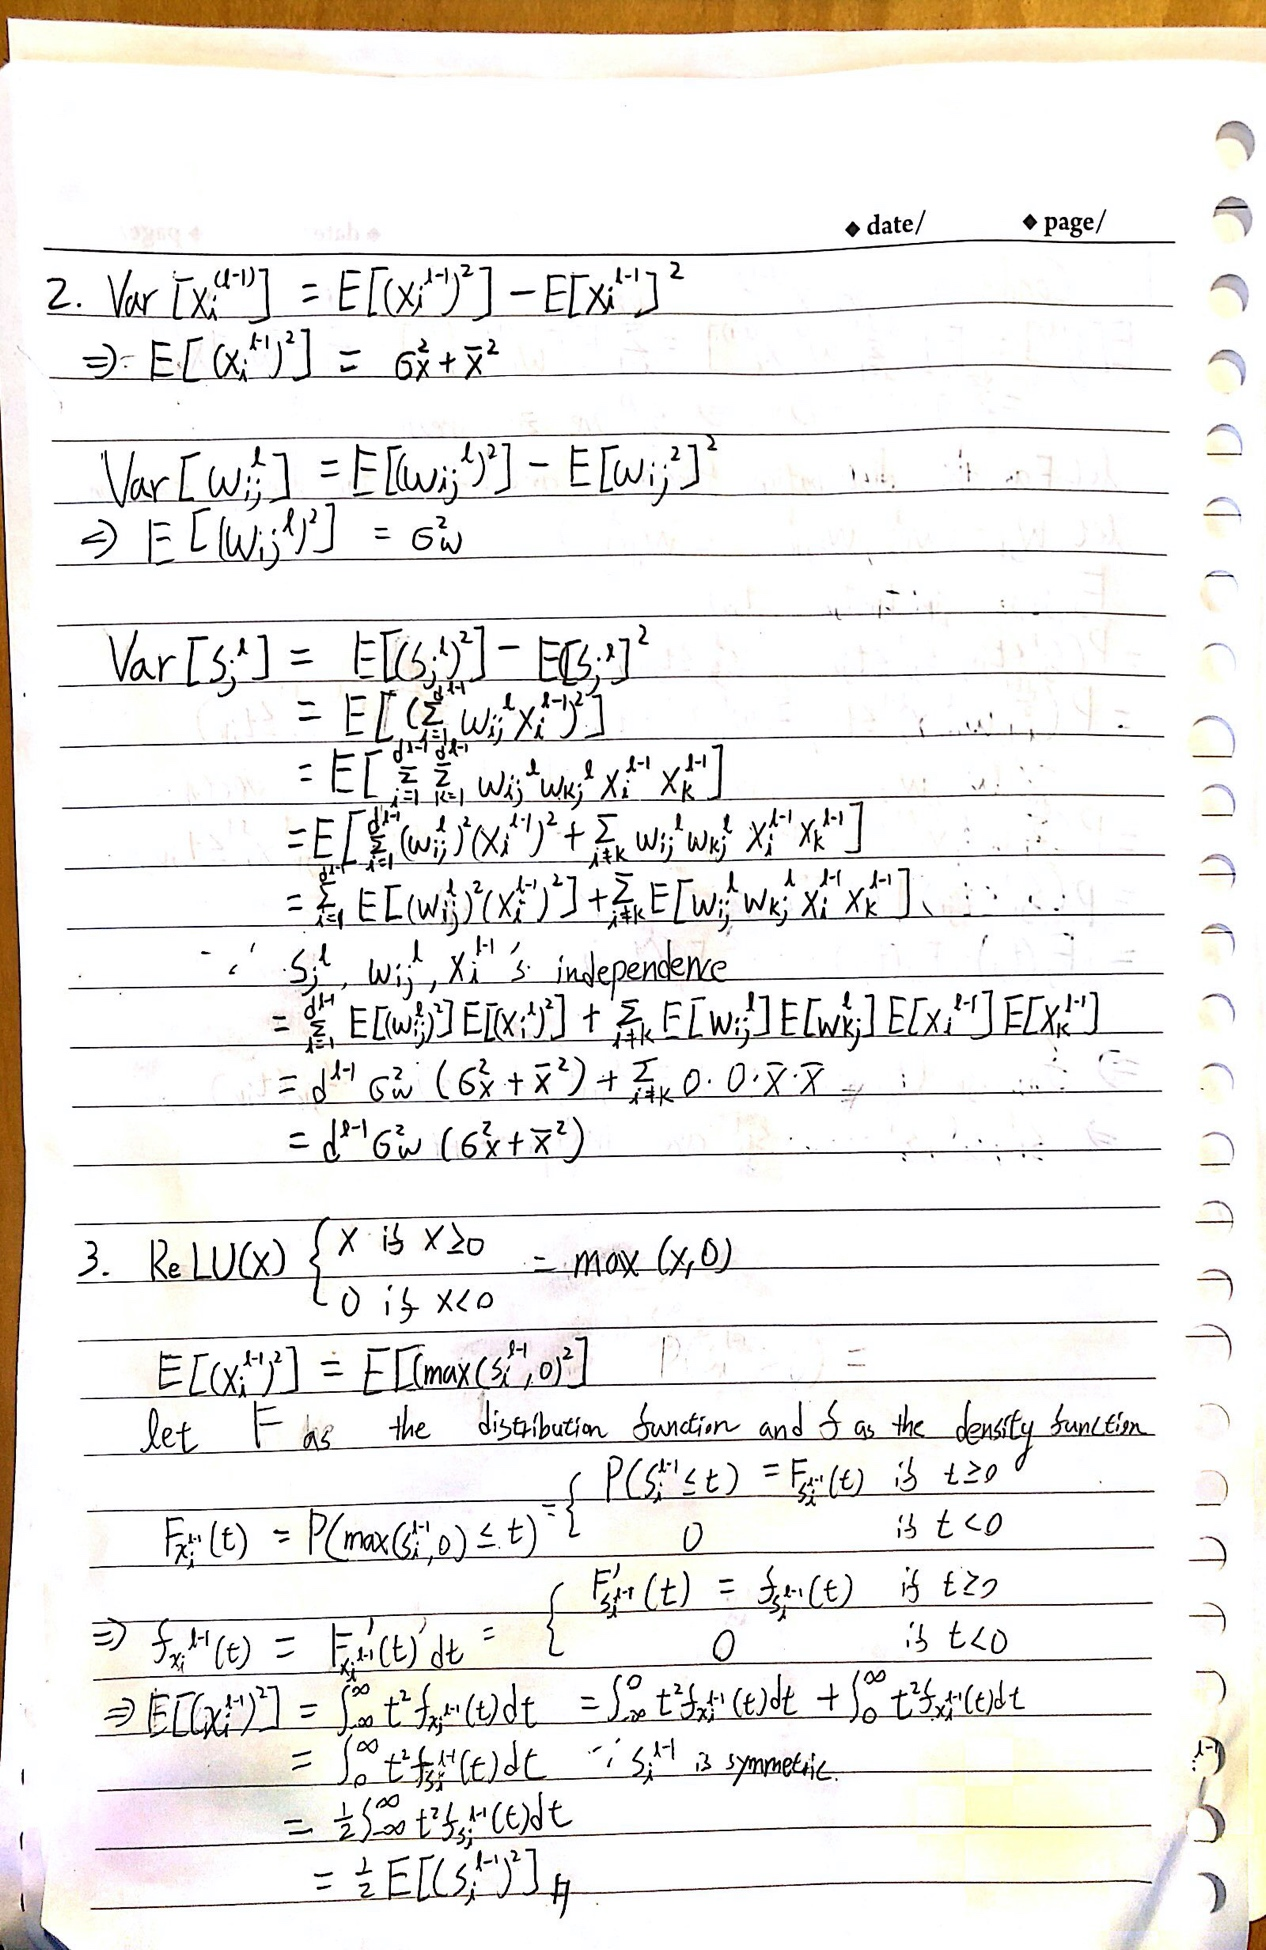 ◆ date/ ◆ page/
2. Var[x_i^{(l-1)}] = E[(x_i^{l-1})^2] - E[x_i^{l-1}]^2
⇒ E[(x_i^{l-1})^2] = σ_x^2 + x̄^2
Var[w_{ij}^l] = E[(w_{ij}^l)^2] - E[w_{ij}^2]^2
⇒ E[(w_{ij}^l)^2] = σ_w^2
Var[s_j^l] = E[(s_j^l)^2] - E[s_j^l]^2
= E[(Σ_{i=1}^{d^{l-1}} w_{ij}^l x_i^{l-1})^2]
= E[Σ_{i=1}^{d^{l-1}} Σ_{k=1}^{d^{l-1}} w_{ij}^l w_{kj}^l x_i^{l-1} x_k^{l-1}]
= E[Σ_{i=1}^{d^{l-1}} (w_{ij}^l)^2 (x_i^{l-1})^2 + Σ_{i≠k} w_{ij}^l w_{kj}^l x_i^{l-1} x_k^{l-1}]
= Σ_{i=1}^{d^{l-1}} E[(w_{ij}^l)^2 (x_i^{l-1})^2] + Σ_{i≠k} E[w_{ij}^l w_{kj}^l x_i^{l-1} x_k^{l-1}]
∵ s_j^l, w_{ij}^l, x_i^{l-1}'s independence
= Σ_{i=1}^{d^{l-1}} E[(w_{ij}^l)^2] E[(x_i^l)^2] + Σ_{i≠k} E[w_{ij}^l] E[w_{kj}^l] E[x_i^{l-1}] E[x_k^{l-1}]
= d^{l-1} σ_w^2 (σ_x^2 + x̄^2) + Σ_{i≠k} 0·0·x̄·x̄
= d^{l-1} σ_w^2 (σ_x^2 + x̄^2)
3. ReLU(x) { x if x≥0 = max(x,0)
0 if x<0
E[(x_i^{l-1})^2] = E[(max(s_i^{l-1},0)^2]
let F as the distribution function and f as the density function
F_{x_i^{l-1}}(t) = P(max(s_i^{l-1},0) ≤ t) = { P(s_i^{l-1} ≤ t) = F_{s_i^{l-1}}(t) if t≥0
0 if t<0
⇒ f_{x_i^{l-1}}(t) = F'_{x_i^{l-1}}(t)'dt = { F'_{s_i^{l-1}}(t) = f_{s_i^{l-1}}(t) if t≥0
0 if t<0
⇒ E[(x_i^{l-1})^2] = ∫_{-∞}^{∞} t^2 f_{x_i^{l-1}}(t)dt = ∫_{-∞}^{0} t^2 f_{x_i^{l-1}}(t)dt + ∫_0^∞ t^2 f_{x_i^{l-1}}(t)dt
= ∫_0^∞ t^2 f_{s_i^{l-1}}(t)dt ∵ s_i^{l-1} is symmetric.
= 1/2 ∫_{-∞}^{∞} t^2 f_{s_i^{l-1}}(t)dt
= 1/2 E[(s_i^{l-1})^2] #